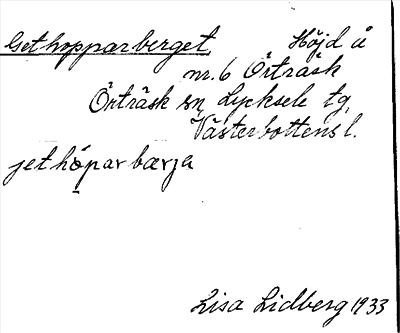 Gethopparberget Höjd å
nr. 6 Örträsk
Örträsk sn Lycksele tg,
Västerbottens l.
jethöparbærja
Lisa Lidberg 1933